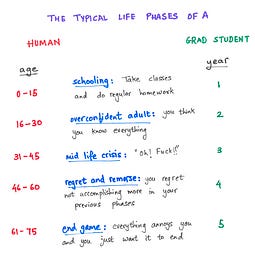 THE TYPICAL LIFE PHASES OF A
HUMAN
GRAD STUDENT
age
year
0-15
schooling: Take classes
and do regular homework
1
16-30
overconfident adult: you think
you know everything
2
31-45
mid life crisis: "Oh! Fuck!!"
3
46-60
regret and remorse: you regret
not accomplishing more in your
previous phases
4
61-75
end game: everything annoys you
and you just want it to end
5